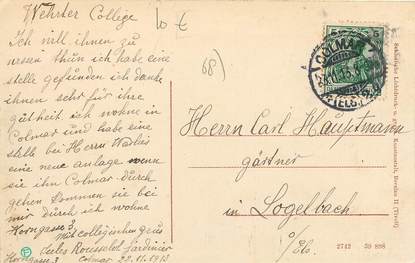 Wehrter College
Ich will ihnen zu
wissen thun ich habe eine
stelle gefunden ich danke
ihnen sehr für ihre
gütheit ich wohne in
Colmar und habe eine
stelle bei Herrn
eine neue anlage wenn
sie ihn Colmar durch
gehen kommen sie bei
mir durch ich wohne
Horngasse 3
Mit collegialischen gruss
Jules Rousselot Jardinier
Horngasse 3 Colmar 22.11.1913
10 €
68)
COLMAR
5 5
Herrn Carl Hauptmann
gärtner
in Logelbach
o/Els.
2742 39 898